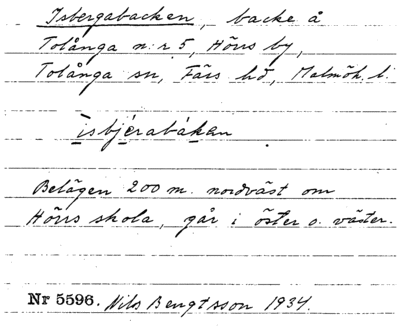 Isbergabacken, backe å
Tolånga n:r 5, Hörrs by,
Tolånga sn, Färs hd, Malmöh. l.
ìsbjèrabákan
Belägen 200 m. nordväst om
Hörrs skola, går i öster o. väster.
Nr 5596. Nils Bengtsson 1934.